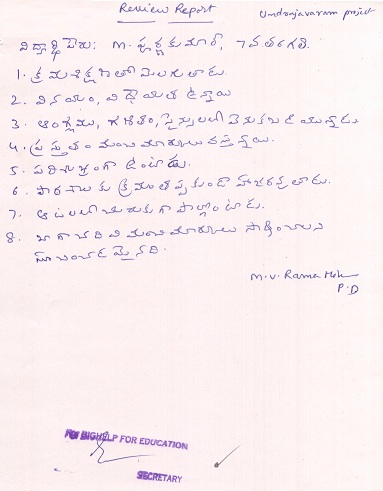 Review Report
Undrajavaram project
విద్యార్థి పేరు: M. హర్షకుమార్, 7వ తరగతి.
1. క్రమశిక్షణతో మెలగుతాడు
2. వినయం, విధేయత ఉన్నాయి
3. ఆంగ్లము, గణితం, సైన్సులలో వెనుకబడి యున్నాడు
4. ప్రస్తుతం మంచి మార్కులు వస్తున్నాయి.
5. పరిశుభ్రంగా ఉంటాడు.
6. పాఠశాలకు క్రమం తప్పకుండా హాజరవుతాడు.
7. ఆటలలో చురుకుగా పాల్గొంటాడు.
8. బాగా చదివి మంచి మార్కులు సాధించాలని
M.V. Rama
P.D
For BIGHELP FOR EDUCATION
SECRETARY